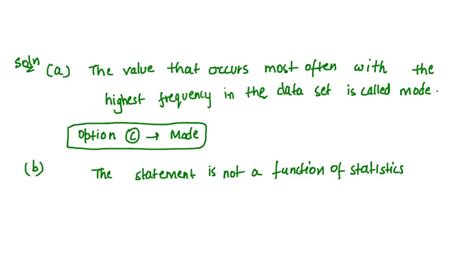 Soln
(a) The value that occurs most often with the
highest frequency in the data set is called mode.
Option Ⓒ → Mode
(b) The statement is not a function of statistics